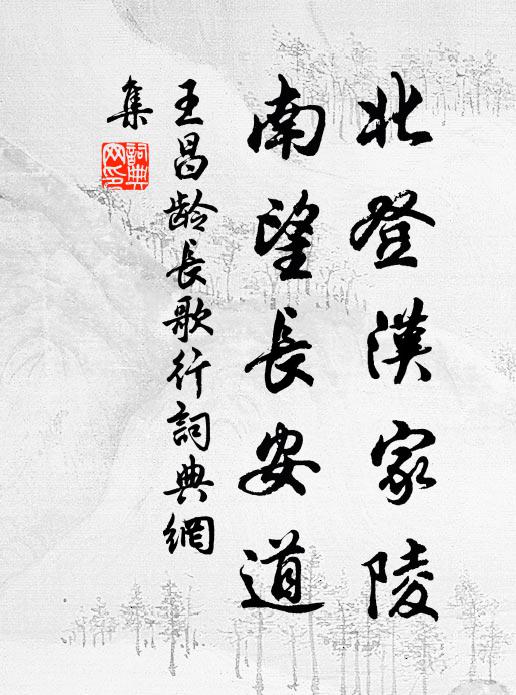 北登漢家陵
南望長安道
王昌龄長歌行詞典網
集
詞典网印